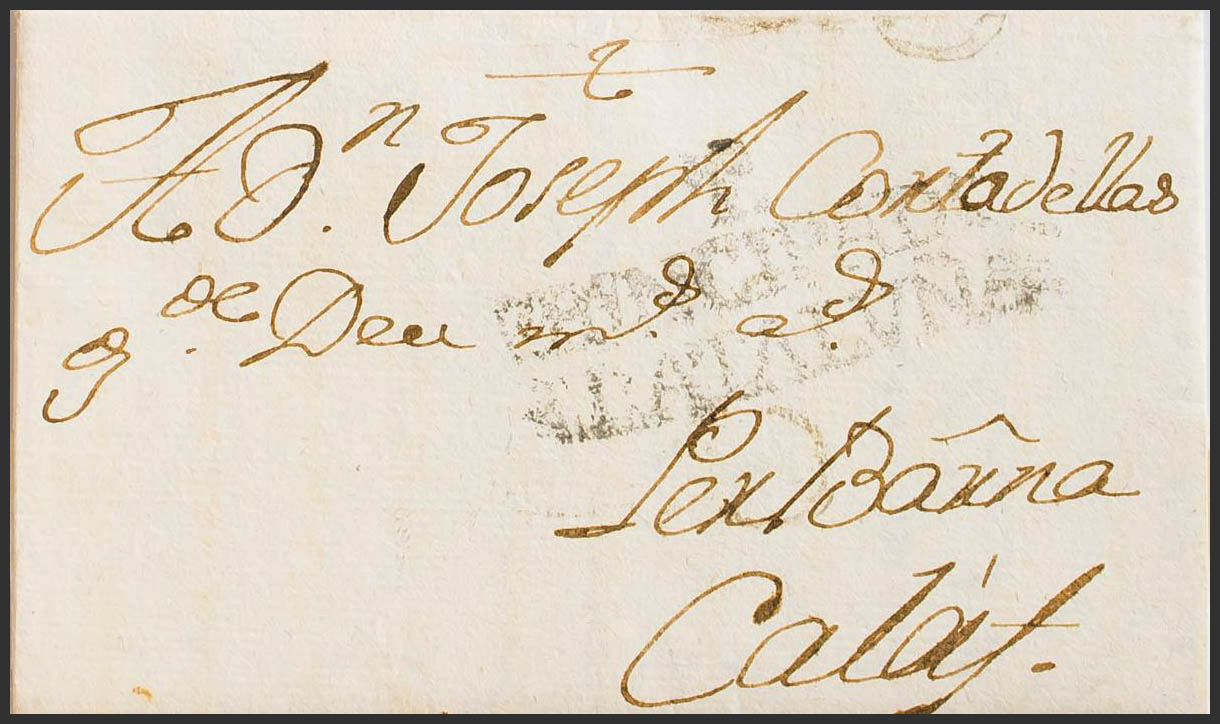 A D.n Joseph Cortadellas
g.de Deu m.s a.s
Per Barna
Caláf.